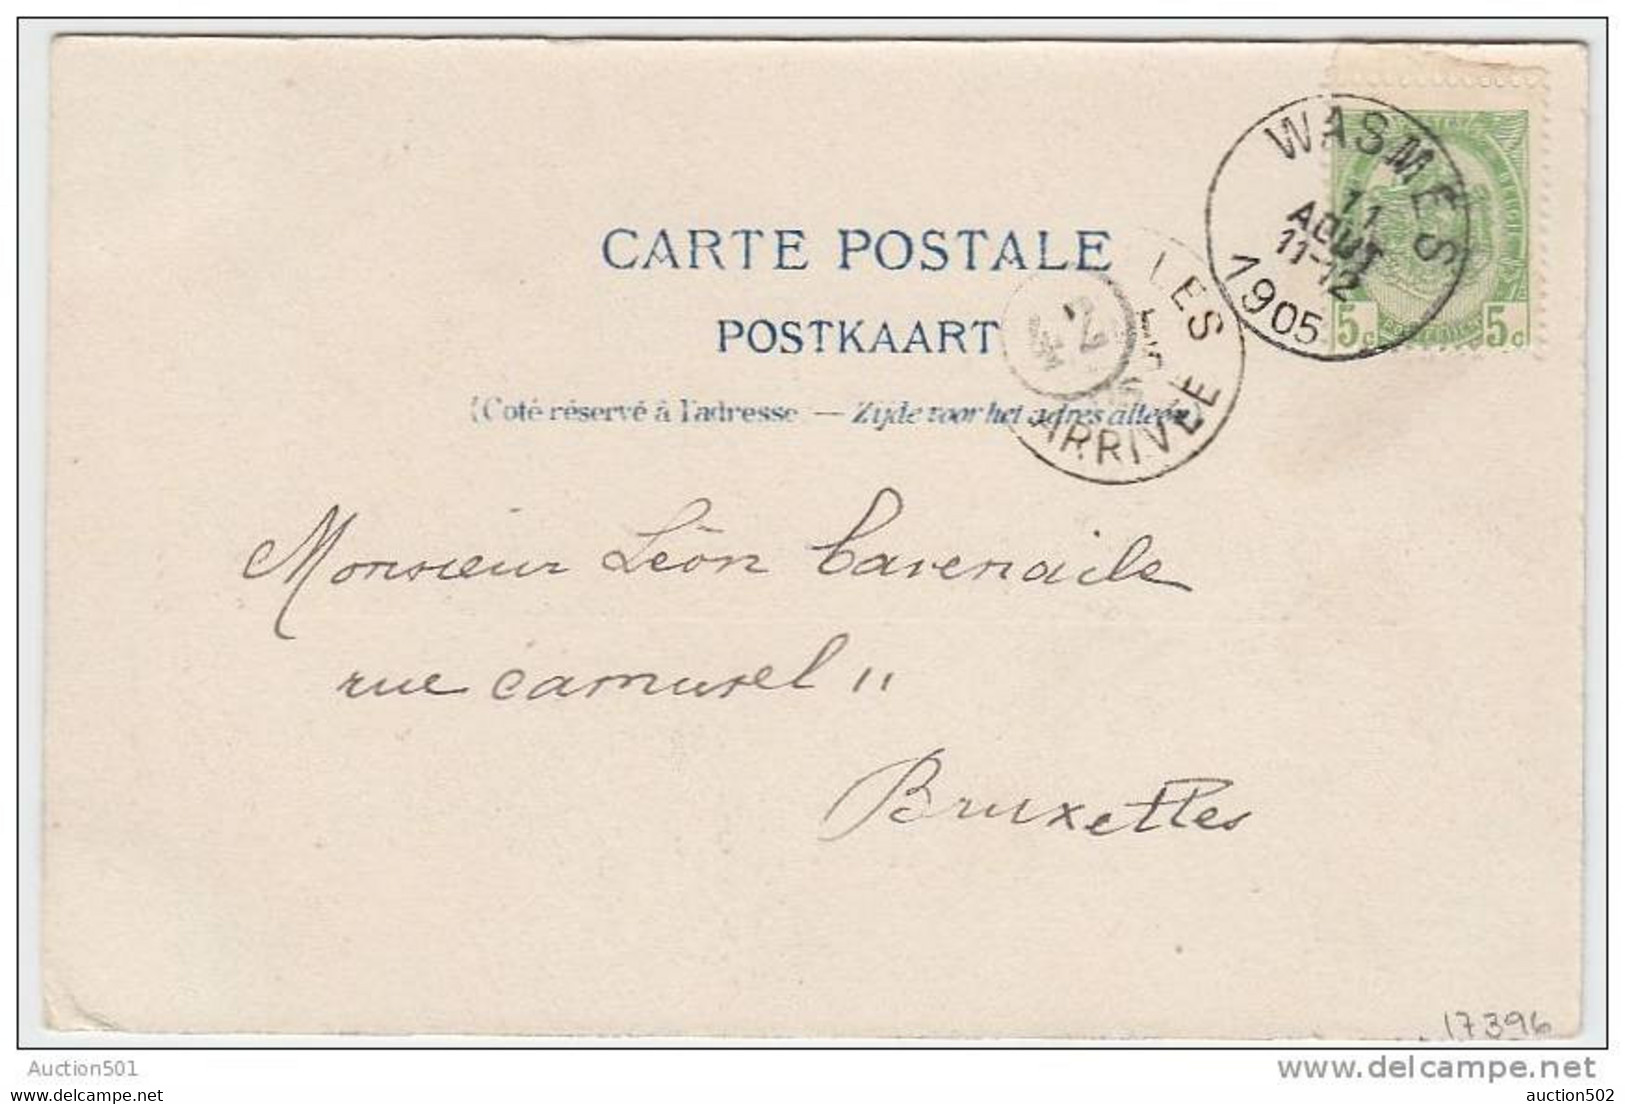 CARTE POSTALE
POSTKAART
(Coté réservé à l'adresse — Zijde voor het adres alleen)
WASMES
11
AOUT
11-12
1905
5c 5c
LES
ARRIVÉE
Monsieur Léon
rue carrusel 11
Bruxelles
17396
Auction501
www.delcampe.net
auction502